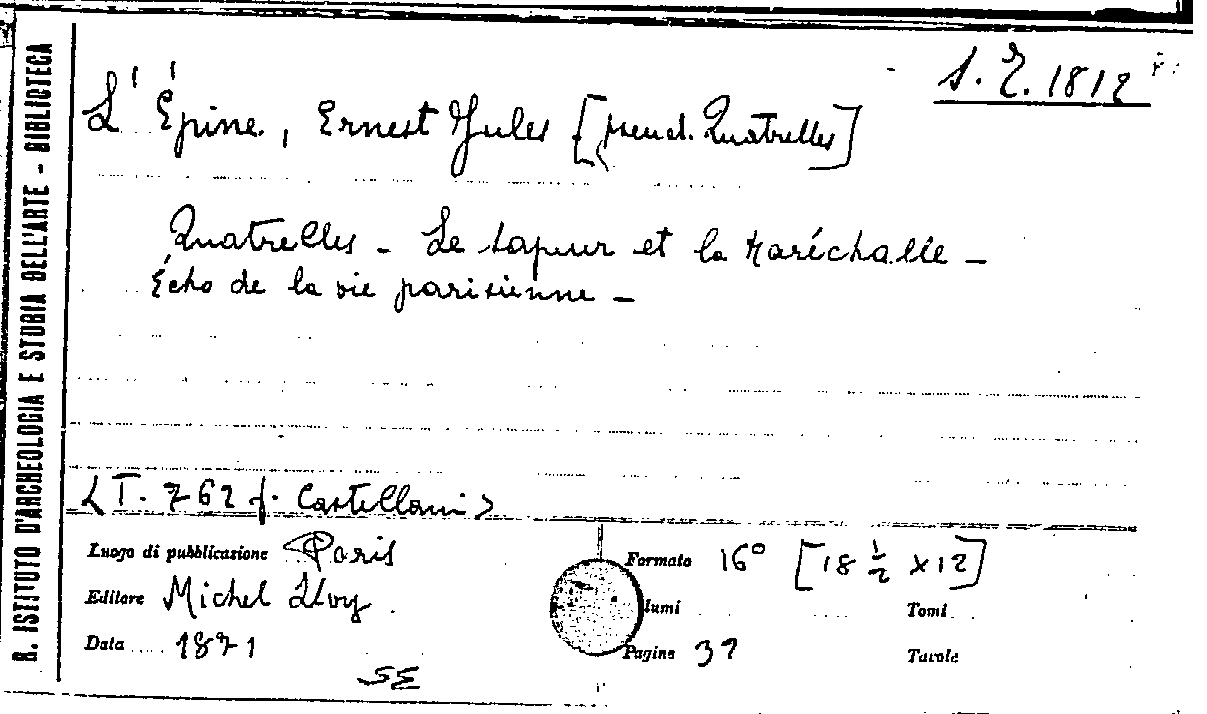 R. ISTITUTO D'ARCHEOLOGIA E STORIA DELL'ARTE - BIBLIOTECA
S. E. 1812
L' Épine, Ernest Jules [pseud. Quatrelles]
Quatrelles - Le sapeur et la Maréchalle -
Écho de la vie parisienne -
< T. 762 f. Castellani >
Luogo di pubblicazione Paris
Editore Michel Lévy
Data 1871
SE
Formato 16° [18 ½ x 12]
lumi
Tomi
Pagine 37
Tavole